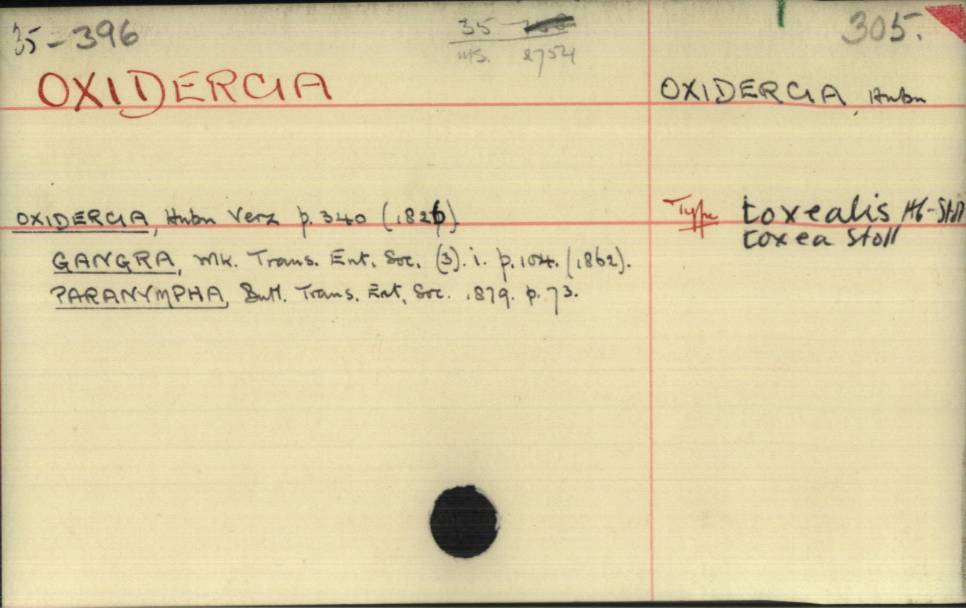 35-396
35
MS. 2754
305.
OXIDERCIA
OXIDERCIA, Hubn
OXIDERCIA, Hubn Verz p. 340 (1826)
Type toxealis Hb-Stoll
toxea Stoll
GANGRA, Wlk. Trans. Ent. Soc. (3). i. p. 104. (1862).
PARANYMPHA, Butl. Trans. Ent. Soc. 1879. p. 73.